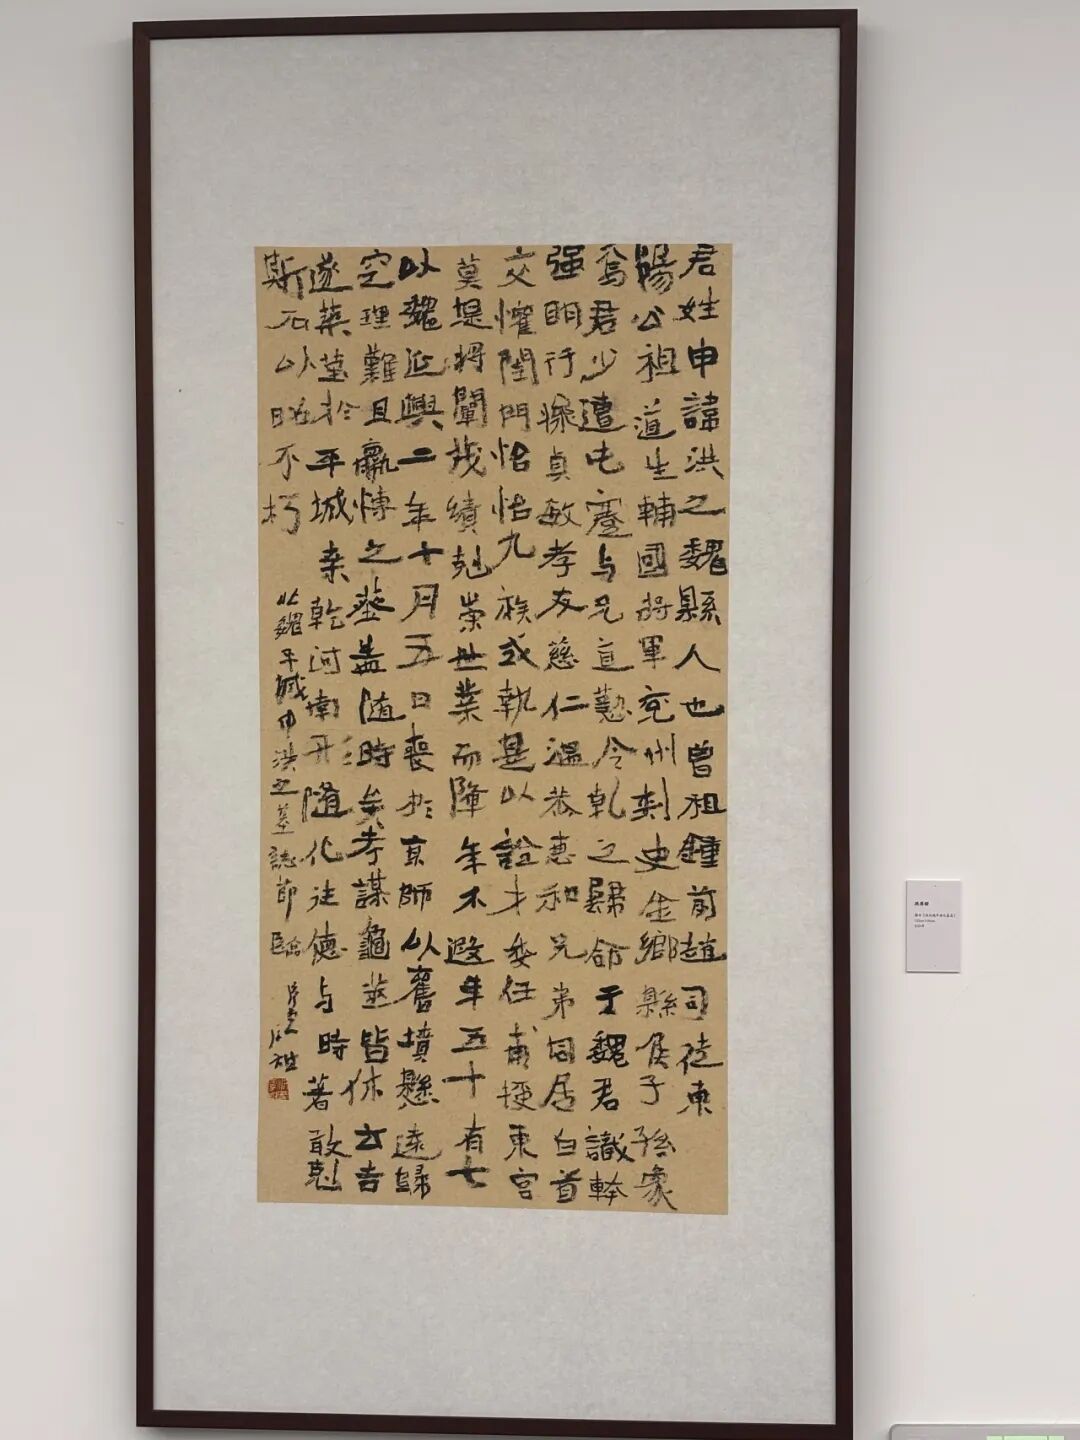 君姓申諱洪之魏縣人也曾祖鍾前趙司徒東
陽公祖道生輔國將軍兗州刺史金鄉縣侯子孫家
焉君少遭屯蹇与兄直懃令乾之歸命于魏君識幹
强明行操貞敏孝友慈仁溫恭惠和兄弟同居白首
交懽閨門怡怡九族式執是以詮才委任甫授東宮
莫堤將闡茂績剋崇世業而降年不遐年五十有七
以魏延興二年十月五日喪於京師以舊墳懸遠歸
空理難且羸博之葬盖隨時矣考謀龜筮皆休云吉
遂築墓於平城桑乾河南形隨化往德与時著敢剋
斯石以昭不朽
北魏平城申洪之墓誌節臨